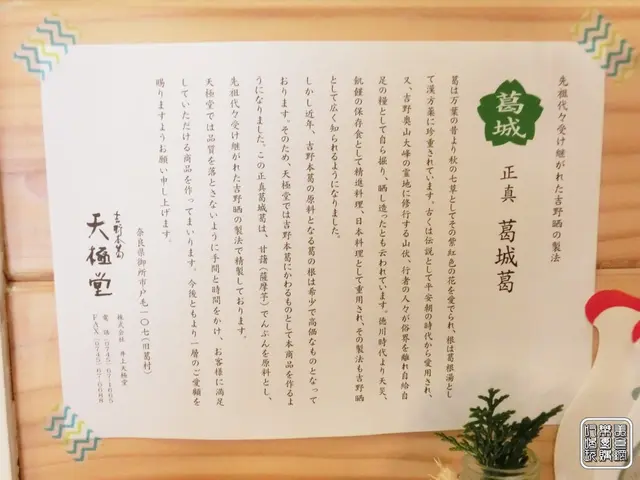 先祖代々受け継がれた吉野晒の製法
葛城
正真 葛城葛
葛は万葉の昔より秋の七草としてその紫紅色の花を愛でられ、根は葛根湯とし
て漢方薬に珍重されています。古くは伝説として平安朝の時代から愛用され、
又、吉野奥山大峰の霊地に修行する山伏、行者の人々が俗界を離れ自給自
足の糧として自ら掘り、晒し造ったとも云われています。徳川時代より天災、
飢饉の保存食として精進料理、日本料理として重用され、その製法も吉野晒
として広く知られるようになりました。
しかし近年、吉野本葛の原料となる葛の根は希少で高価なものとなって
おります。そのため、天極堂では吉野本葛にかわるものとして本商品を作るよ
うになりました。この正真葛城葛は、甘藷（薩摩芋）でんぷんを原料とし、
先祖代々受け継がれた吉野晒の製法で精製しております。
天極堂では品質を落とさないように手間と時間をかけ、お客様に満足
していただける商品を作ってまいります。今後ともより一層のご愛顧を
賜りますようお願い申し上げます。
吉野本葛
天極堂
奈良県御所市戸毛一〇七（旧葛村）
株式会社 井上天極堂